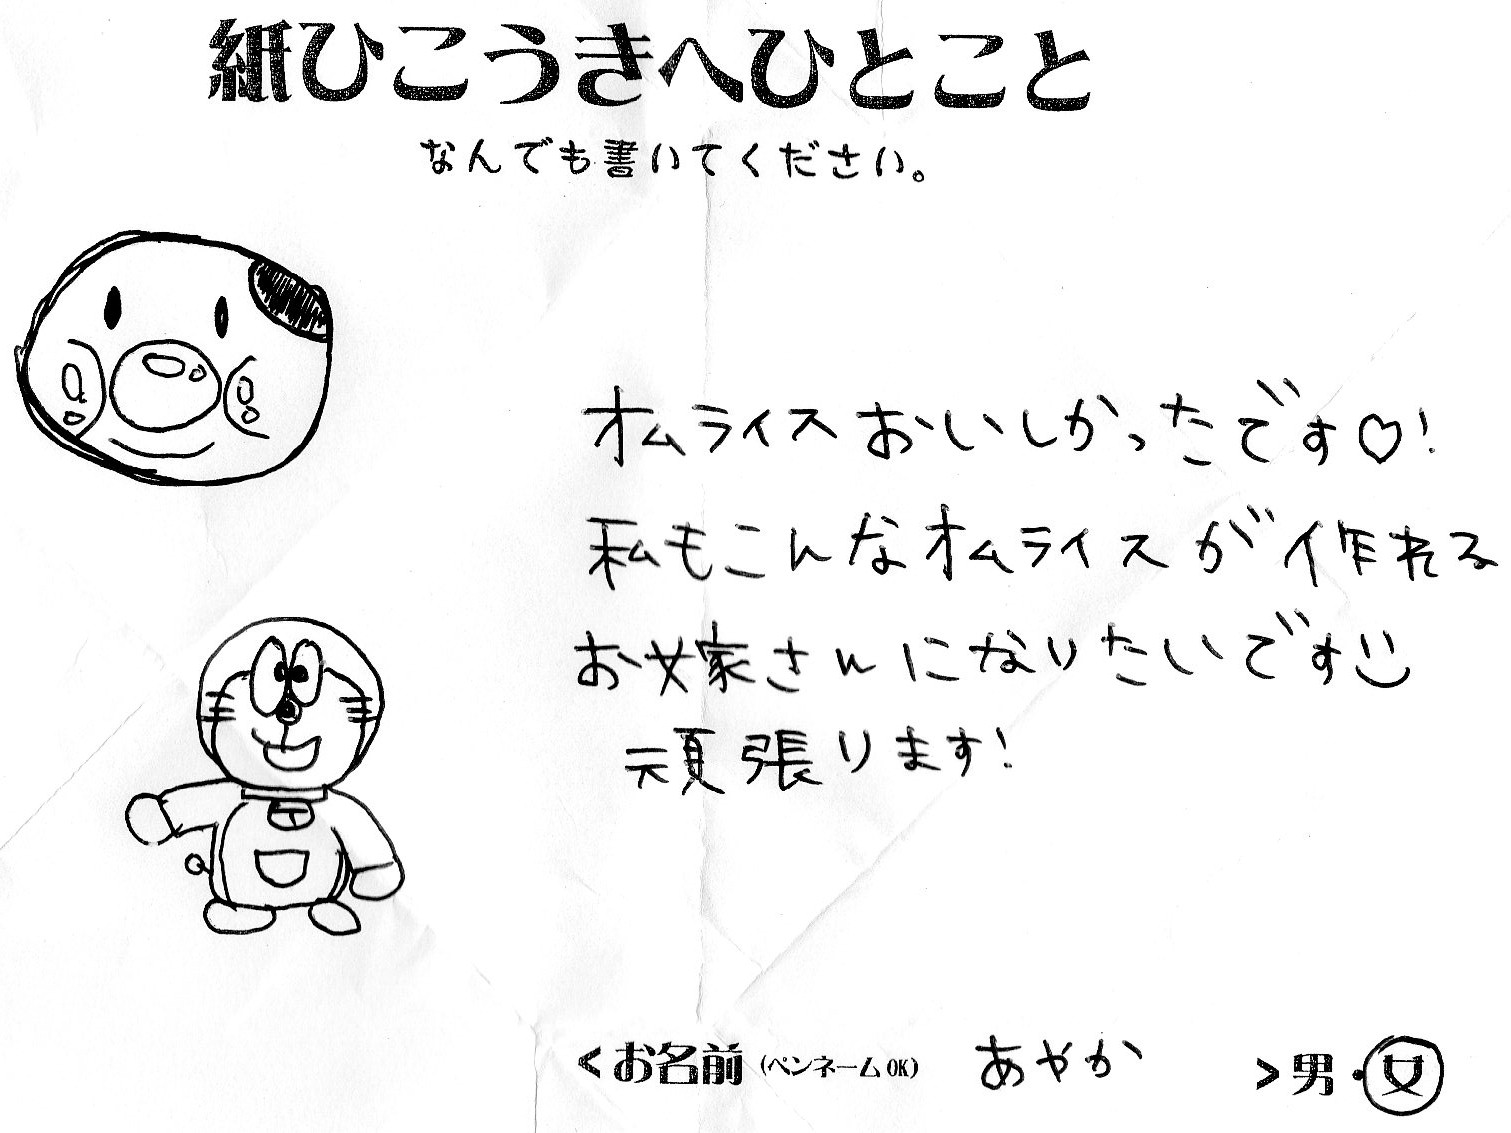 紙ひこうきへひとこと
なんでも書いてください。
オムライスおいしかったです♡!
私もこんなオムライスが作れる
お嫁さんになりたいです
頑張ります!
<お名前(ペンネームOK) あやか >男・女